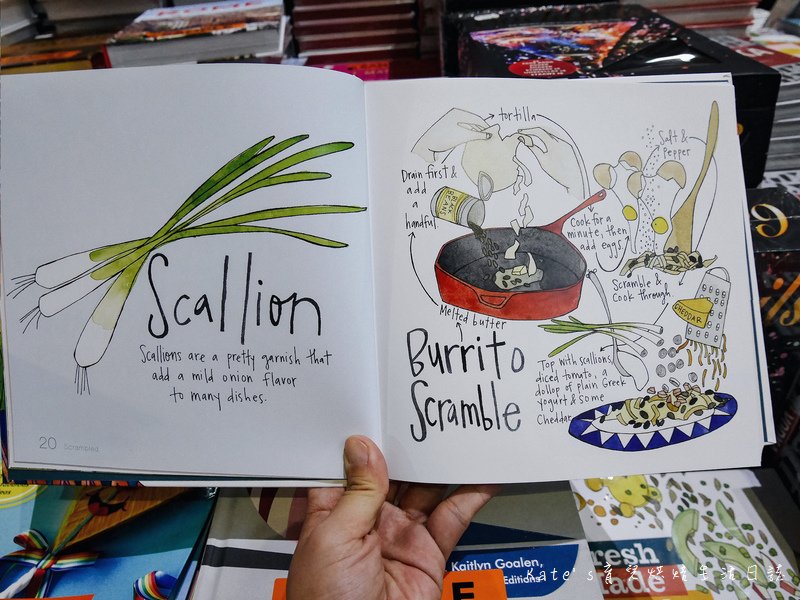 Scallion
Scallions are a pretty garnish that
add a mild onion flavor
to many dishes.
20 Scrambled
tortilla
Drain first &
add
a
handful.
BLACK
BEANS
Salt &
Pepper
Cook for a
minute, then
add eggs.
Scramble &
Cook through
CHEDDAR
Melted butter
Burrito
Scramble
Top with scallions,
diced tomato, a
dollop of plain Greek
yogurt & some
Cheddar.
Kaitlyn Goalen,
Editions
Kate's育兒烘焙生活日誌